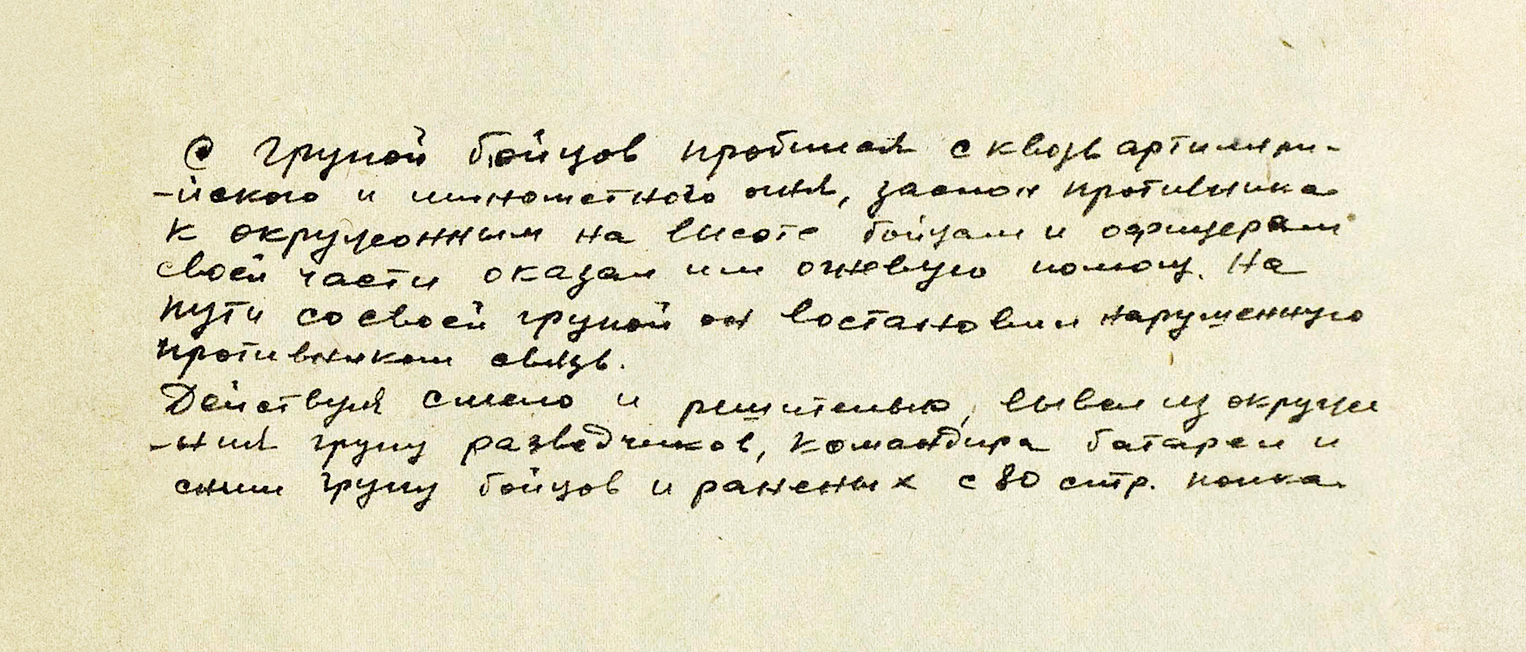 С групой бойцов пробился сквозь артилери-
-йского и минометного огня, заслон противника
к окружонным на высоте бойцам и офицерам
своей части оказал им огневую помощ. На
пути со своей групой он востановил нарушенную
противником связь.
Действуя смело и решительно, вывел из окруже
-ния групу разведчиков, командира батареи и
с ним групу бойцов и раненых с 80 стр. полка.